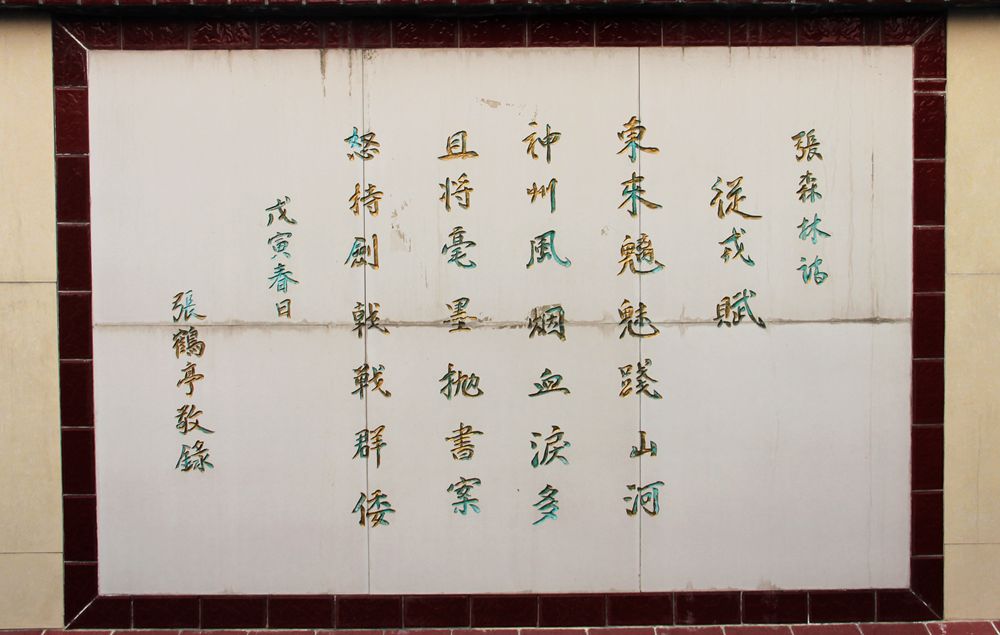 張森林詩
從戎賦
東來魑魅踐山河
神州風烟血淚多
且将毫墨抛書案
怒持劍戟戦群倭
戊寅春日
張鶴亭敬錄